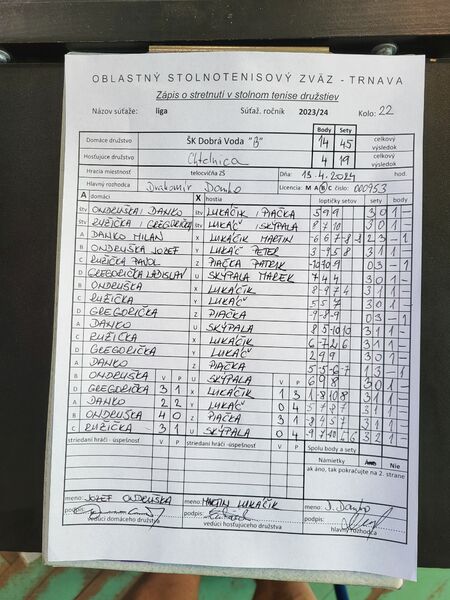 OBLASTNÝ STOLNOTENISOVÝ ZVÄZ - TRNAVA
Zápis o stretnutí v stolnom tenise družstiev
Názov súťaže: liga Súťaž. ročník 2023/24 Kolo: 22
Body Sety
Domáce družstvo ŠK Dobrá Voda "B" 14 45 celkový výsledok
Hosťujúce družstvo Chtelnica 4 19 celkový výsledok
Hracia miestnosť telocvičňa ZŠ Dňa: 13.4.2024 hod.
Hlavný rozhodca Drahomír Danko Licencia: M A B C číslo: 000953
A domáci X hostia loptičky setov sety body
štv ONDRUŠKA I DANKO štv LUKÁČIK I PIAČKA 5 9 9 3 0 1 -
štv RUŽIČKA I GREGORIČKA štv LUKÁČ I SKÝPALA 8 7 10 3 0 1 -
A DANKO MILAN X LUKÁČIK MARTIN -6 6 7 -8 -8 2 3 - 1
B ONDRUŠKA JOZEF Y LUKÁČ PETER 3 -9 5 8 3 1 1 -
C RUŽIČKA PAVOL Z PIAČKA PATRIK -10 -10 -9 0 3 - 1
D GREGORIČKA LADISLAV U SKÝPALA MAREK 7 4 4 3 0 1 -
B ONDRUŠKA X LUKÁČIK 8 -9 7 4 3 1 1 -
C RUŽIČKA Y LUKÁČ 5 5 7 3 0 1 -
D GREGORIČKA Z PIAČKA -9 -8 -9 0 3 - 1
A DANKO U SKÝPALA 8 5 -10 10 3 1 1 -
C RUŽIČKA X LUKÁČIK 6 -7 2 6 3 1 1 -
D GREGORIČKA Y LUKÁČ 2 9 9 3 0 1 -
A DANKO Z PIAČKA 5 -5 -6 -7 1 3 - 1
B ONDRUŠKA V P U SKÝPALA V P 6 9 8 3 0 1 -
D GREGORIČKA 3 1 X LUKÁČIK 1 3 -1 8 10 8 3 1 1 -
A DANKO 2 2 Y LUKÁČ 0 4 5 -7 8 7 3 1 1 -
B ONDRUŠKA 4 0 Z PIAČKA 3 1 8 -7 5 7 3 1 1 -
C RUŽIČKA 3 1 U SKÝPALA 0 4 3 2 1 -
striedaní hráči - úspešnosť V P striedaní hráči - úspešnosť V P Spolu body a sety
Námietky Áno Nie
ak áno, tak pokračujte na 2. strane
meno: JOZEF ONDRUŠKA meno: MARTIN LUKÁČIK meno: D. Danko
podpis: podpis: podpis:
vedúci domáceho družstva vedúci hosťujúceho družstva hlavný rozhodca